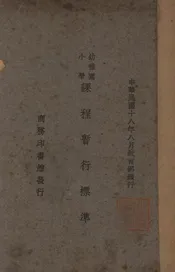 中華民國十八年八月教育部頒行
幼稚園
小學
課程暫行標準
商務印書館發行